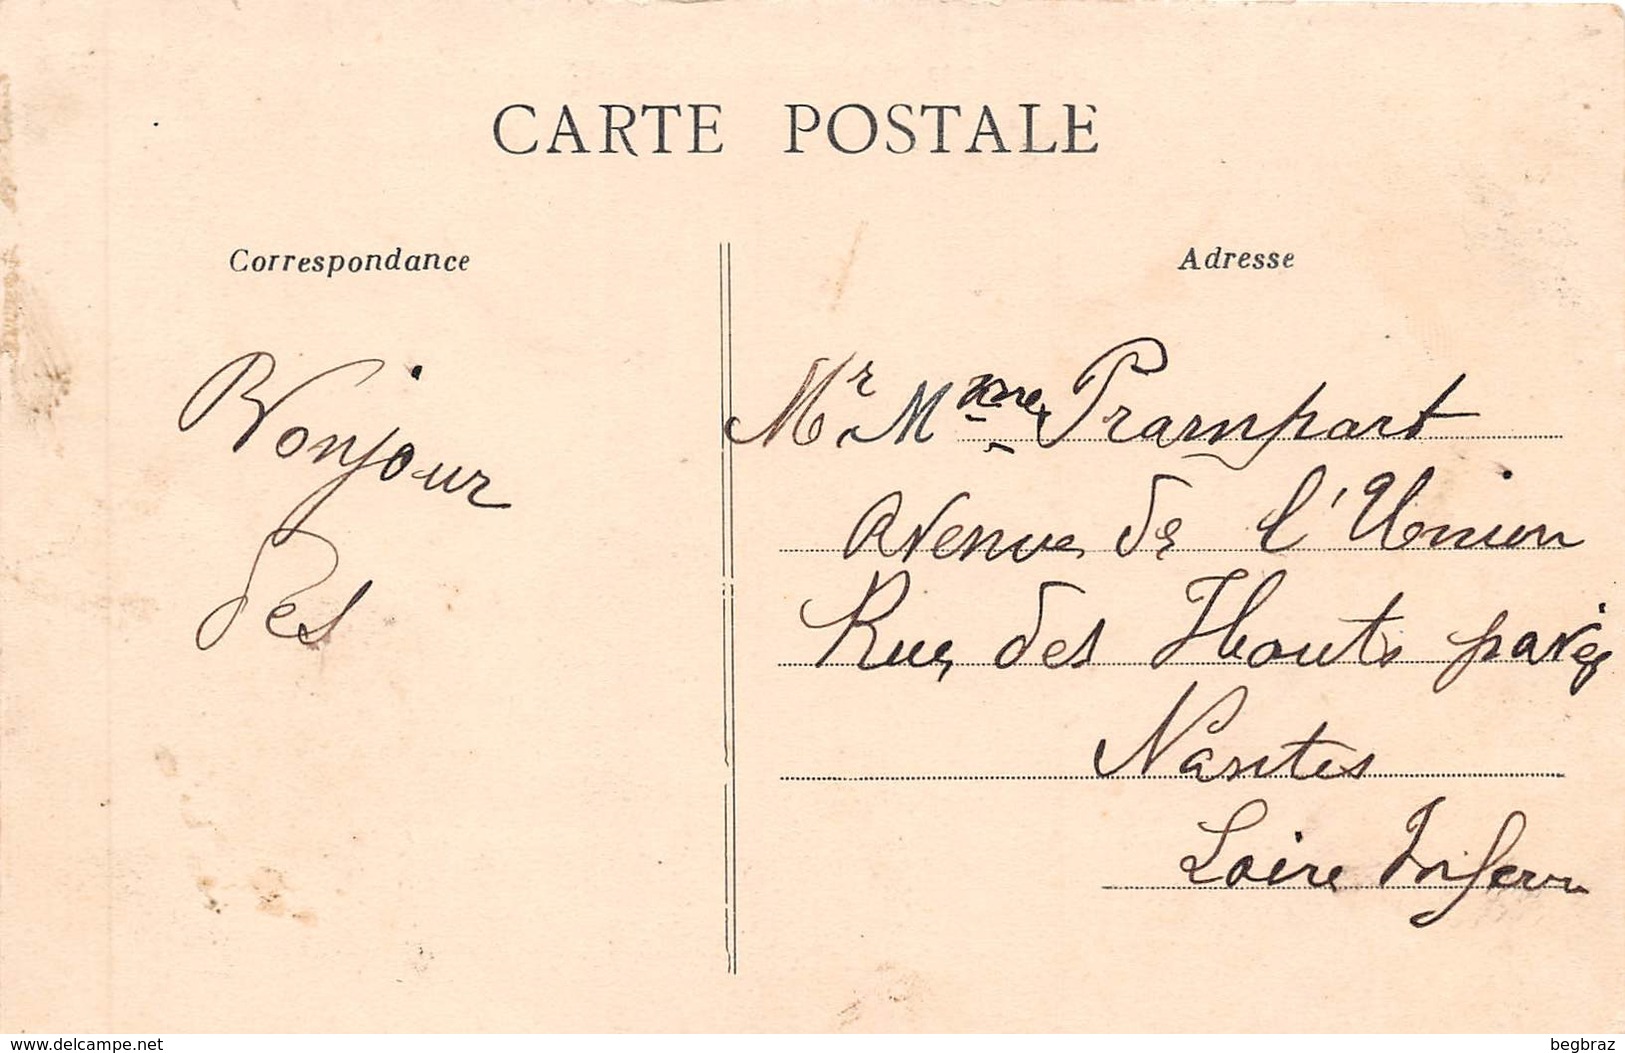 CARTE POSTALE
Correspondance
Adresse
Bonjour
des
Mr Mme Prampart
avenue de l'Union
Rue des Hauts pavés
Nantes
Loire Inferr
www.delcampe.net
begbraz